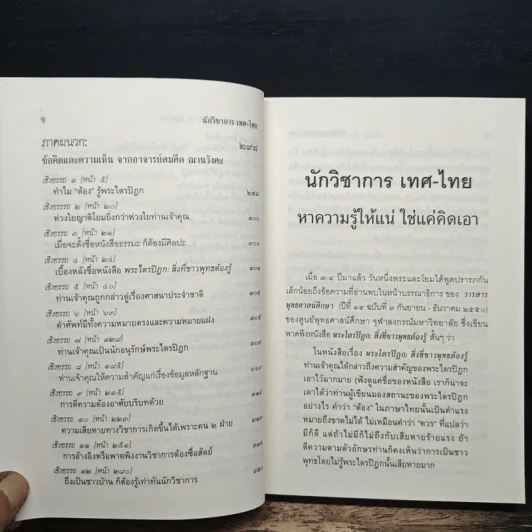 ซ
นักวิชาการ เทศ-ไทย
ภาคผนวก: ๒๙๗
ข้อคิดและความเห็น จากอาจารย์สมศีล ฌานวังศะ
เชิงอรรถ ๑ [หน้า ๕]
ทำไม “ต้อง” รู้พระไตรปิฎก
เชิงอรรถ ๒ [หน้า ๒๐]
ห่วงใยญาติโยมยิ่งกว่าห่วงใยท่านเจ้าคุณ
เชิงอรรถ ๓ [หน้า ๒๑]
เมื่อจะตั้งชื่อหนังสือธรรมะ ก็ต้องมีศิลปะ
เชิงอรรถ ๔ [หน้า ๒๔]
เบื้องหลังชื่อหนังสือ พระไตรปิฎก: สิ่งที่ชาวพุทธต้องรู้
เชิงอรรถ ๕ [หน้า ๔๐]
ท่านเจ้าคุณถูกกล่าวตู่เรื่องศาสนาประจำชาติ
เชิงอรรถ ๖ [หน้า ๖๓]
คำศัพท์มีทั้งความหมายตรงและความหมายแฝง
เชิงอรรถ ๗ [หน้า ๑๒๘]
ท่านเจ้าคุณเป็นนักอนุรักษ์พระไตรปิฎก
เชิงอรรถ ๘ [หน้า ๑๘๕]
ท่านเจ้าคุณให้ความสำคัญแก่เรื่องข้อมูลหลักฐาน
เชิงอรรถ ๙ [หน้า
การตีความต้องอาศัยบริบทด้วย
เชิงอรรถ ๑๐ [หน้า ๒๒๓]
ความเสียหายทางวิชาการเกิดขึ้นได้เพราะคน ๒ ฝ่าย
เชิงอรรถ ๑๑ [หน้า ๒๕๑]
การอ้างอิงหรือพาดพิงงานวิชาการต้องซื่อสัตย์
เชิงอรรถ ๑๒ [หน้า ๒๘๐]
ถึงเป็นชาวบ้าน ก็ต้องรู้เท่าทันนักวิชาการ
นักวิชาการ เทศ-ไทย
หาความรู้ให้แน่ ใช่แค่คิดเอา
เมื่อ ๓-๔ ปีมาแล้ว วันหนึ่งพระและโยมได้พูดปรารภกัน
เล็กน้อยถึงข้อความที่อ่านพบในหน้าบรรณาธิการ ของ วารสาร
พุทธศาสน์ศึกษา (ปีที่ ๑๔ ฉบับที่ ๓ กันยายน - ธันวาคม ๒๕๕๐)
ของศูนย์พุทธศาสน์ศึกษา จุฬาลงกรณ์มหาวิทยาลัย ซึ่งเขียน
พาดพิงหนังสือ พระไตรปิฎก: สิ่งที่ชาวพุทธต้องรู้ สั้นๆ ว่า
ในหนังสือเรื่อง พระไตรปิฎก: สิ่งที่ชาวพุทธต้องรู้
ท่านเจ้าคุณได้กล่าวถึงความสำคัญของพระไตรปิฎก
เอาไว้มากมาย (ฟังดูแค่ชื่อของหนังสือ เราก็น่าจะ
เดาได้ว่าท่านผู้เขียนมองสถานะของพระไตรปิฎก
อย่างไร คำว่า “ต้อง” ในภาษาไทยนั้นเป็นคำแรง
หมายถึงขาดไม่ได้ ไม่เหมือนคำว่า “ควร” ที่แปลว่า
มีก็ดี แต่ถ้าไม่มีก็ไม่ถึงกับเสียหายร้ายแรง ถ้า
ตีความตามตัวอักษรท่านก็คงเห็นว่าการเป็นชาว
พุทธโดยไม่รู้พระไตรปิฎกนั้นเสียหายมาก